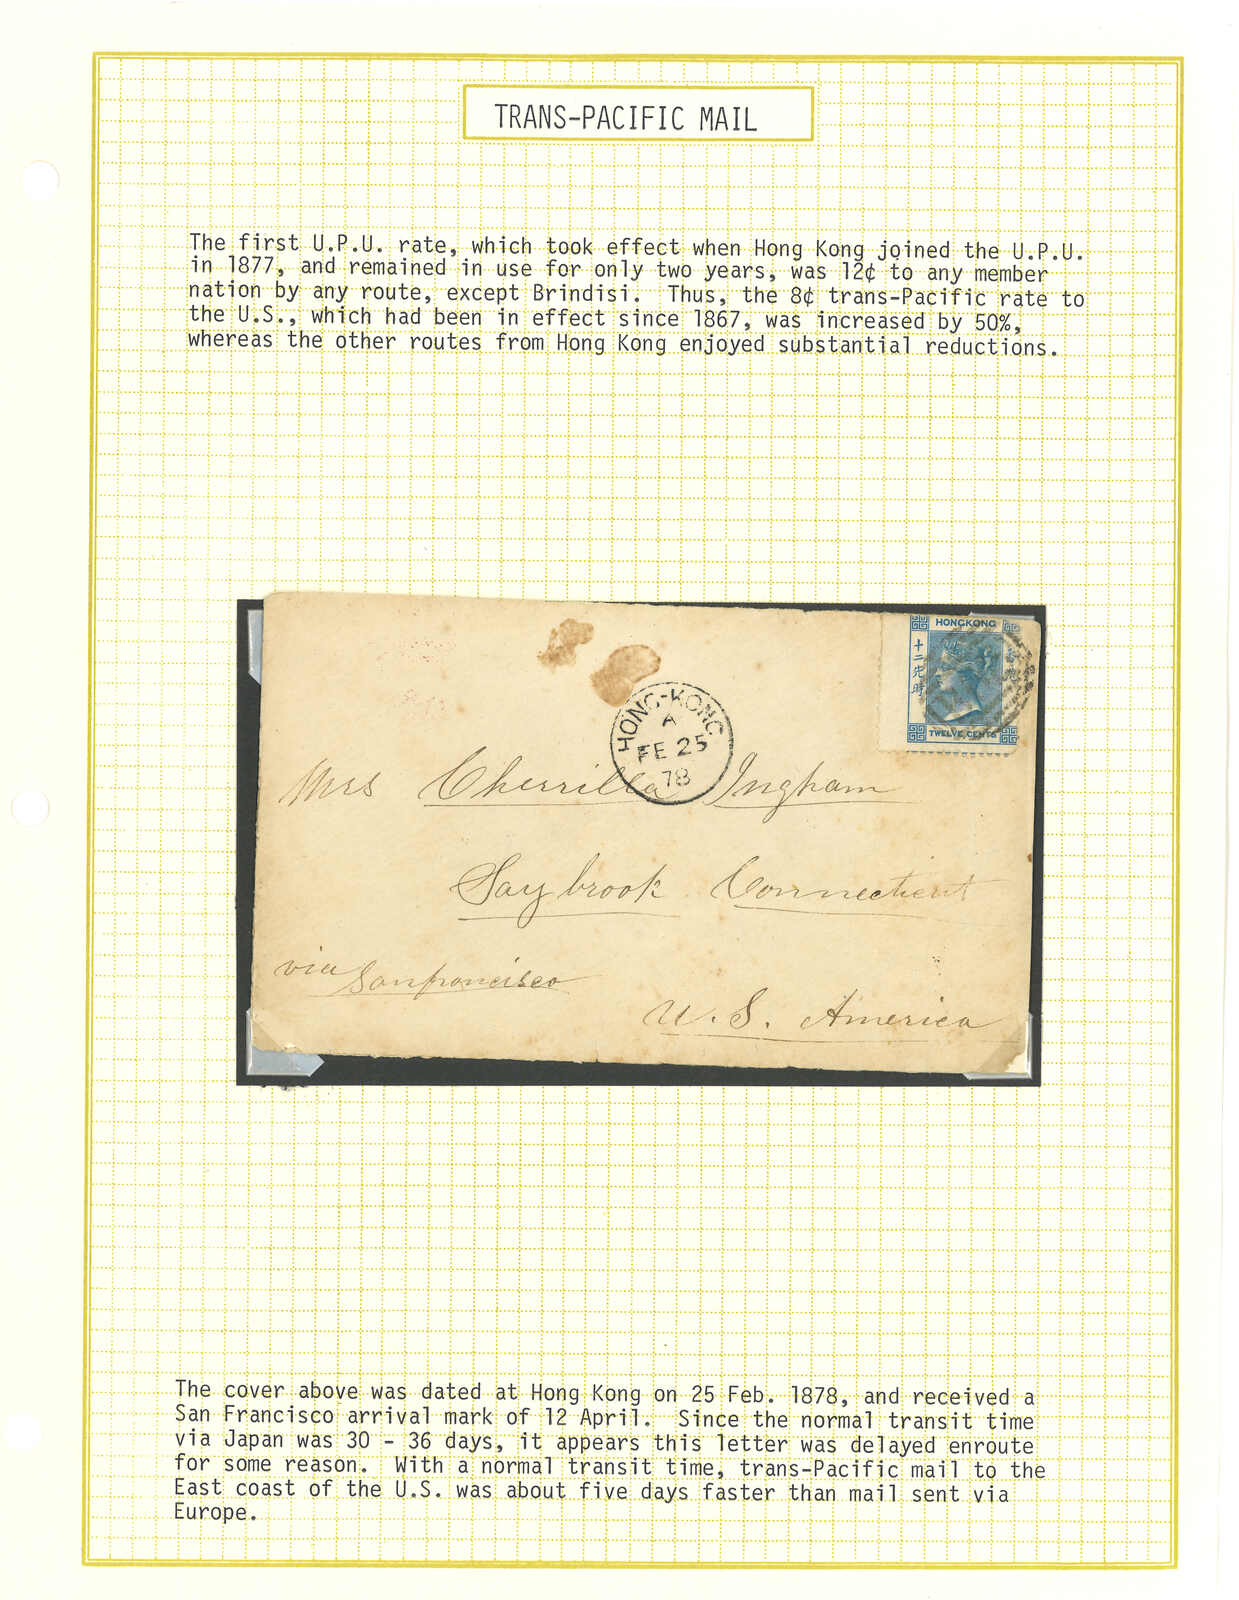 TRANS-PACIFIC MAIL
The first U.P.U. rate, which took effect when Hong Kong joined the U.P.U.
in 1877, and remained in use for only two years, was 12¢ to any member
nation by any route, except Brindisi. Thus, the 8¢ trans-Pacific rate to
the U.S., which had been in effect since 1867, was increased by 50%,
whereas the other routes from Hong Kong enjoyed substantial reductions.
HONGKONG
十二先時
TWELVE CENTS
HONG-KONG
A
FE 25
78
Mrs Cherrilla Ingham
Saybrook Connecticut
via Sanfrancisco
U. S. America
The cover above was dated at Hong Kong on 25 Feb. 1878, and received a
San Francisco arrival mark of 12 April. Since the normal transit time
via Japan was 30 - 36 days, it appears this letter was delayed enroute
for some reason. With a normal transit time, trans-Pacific mail to the
East coast of the U.S. was about five days faster than mail sent via
Europe.